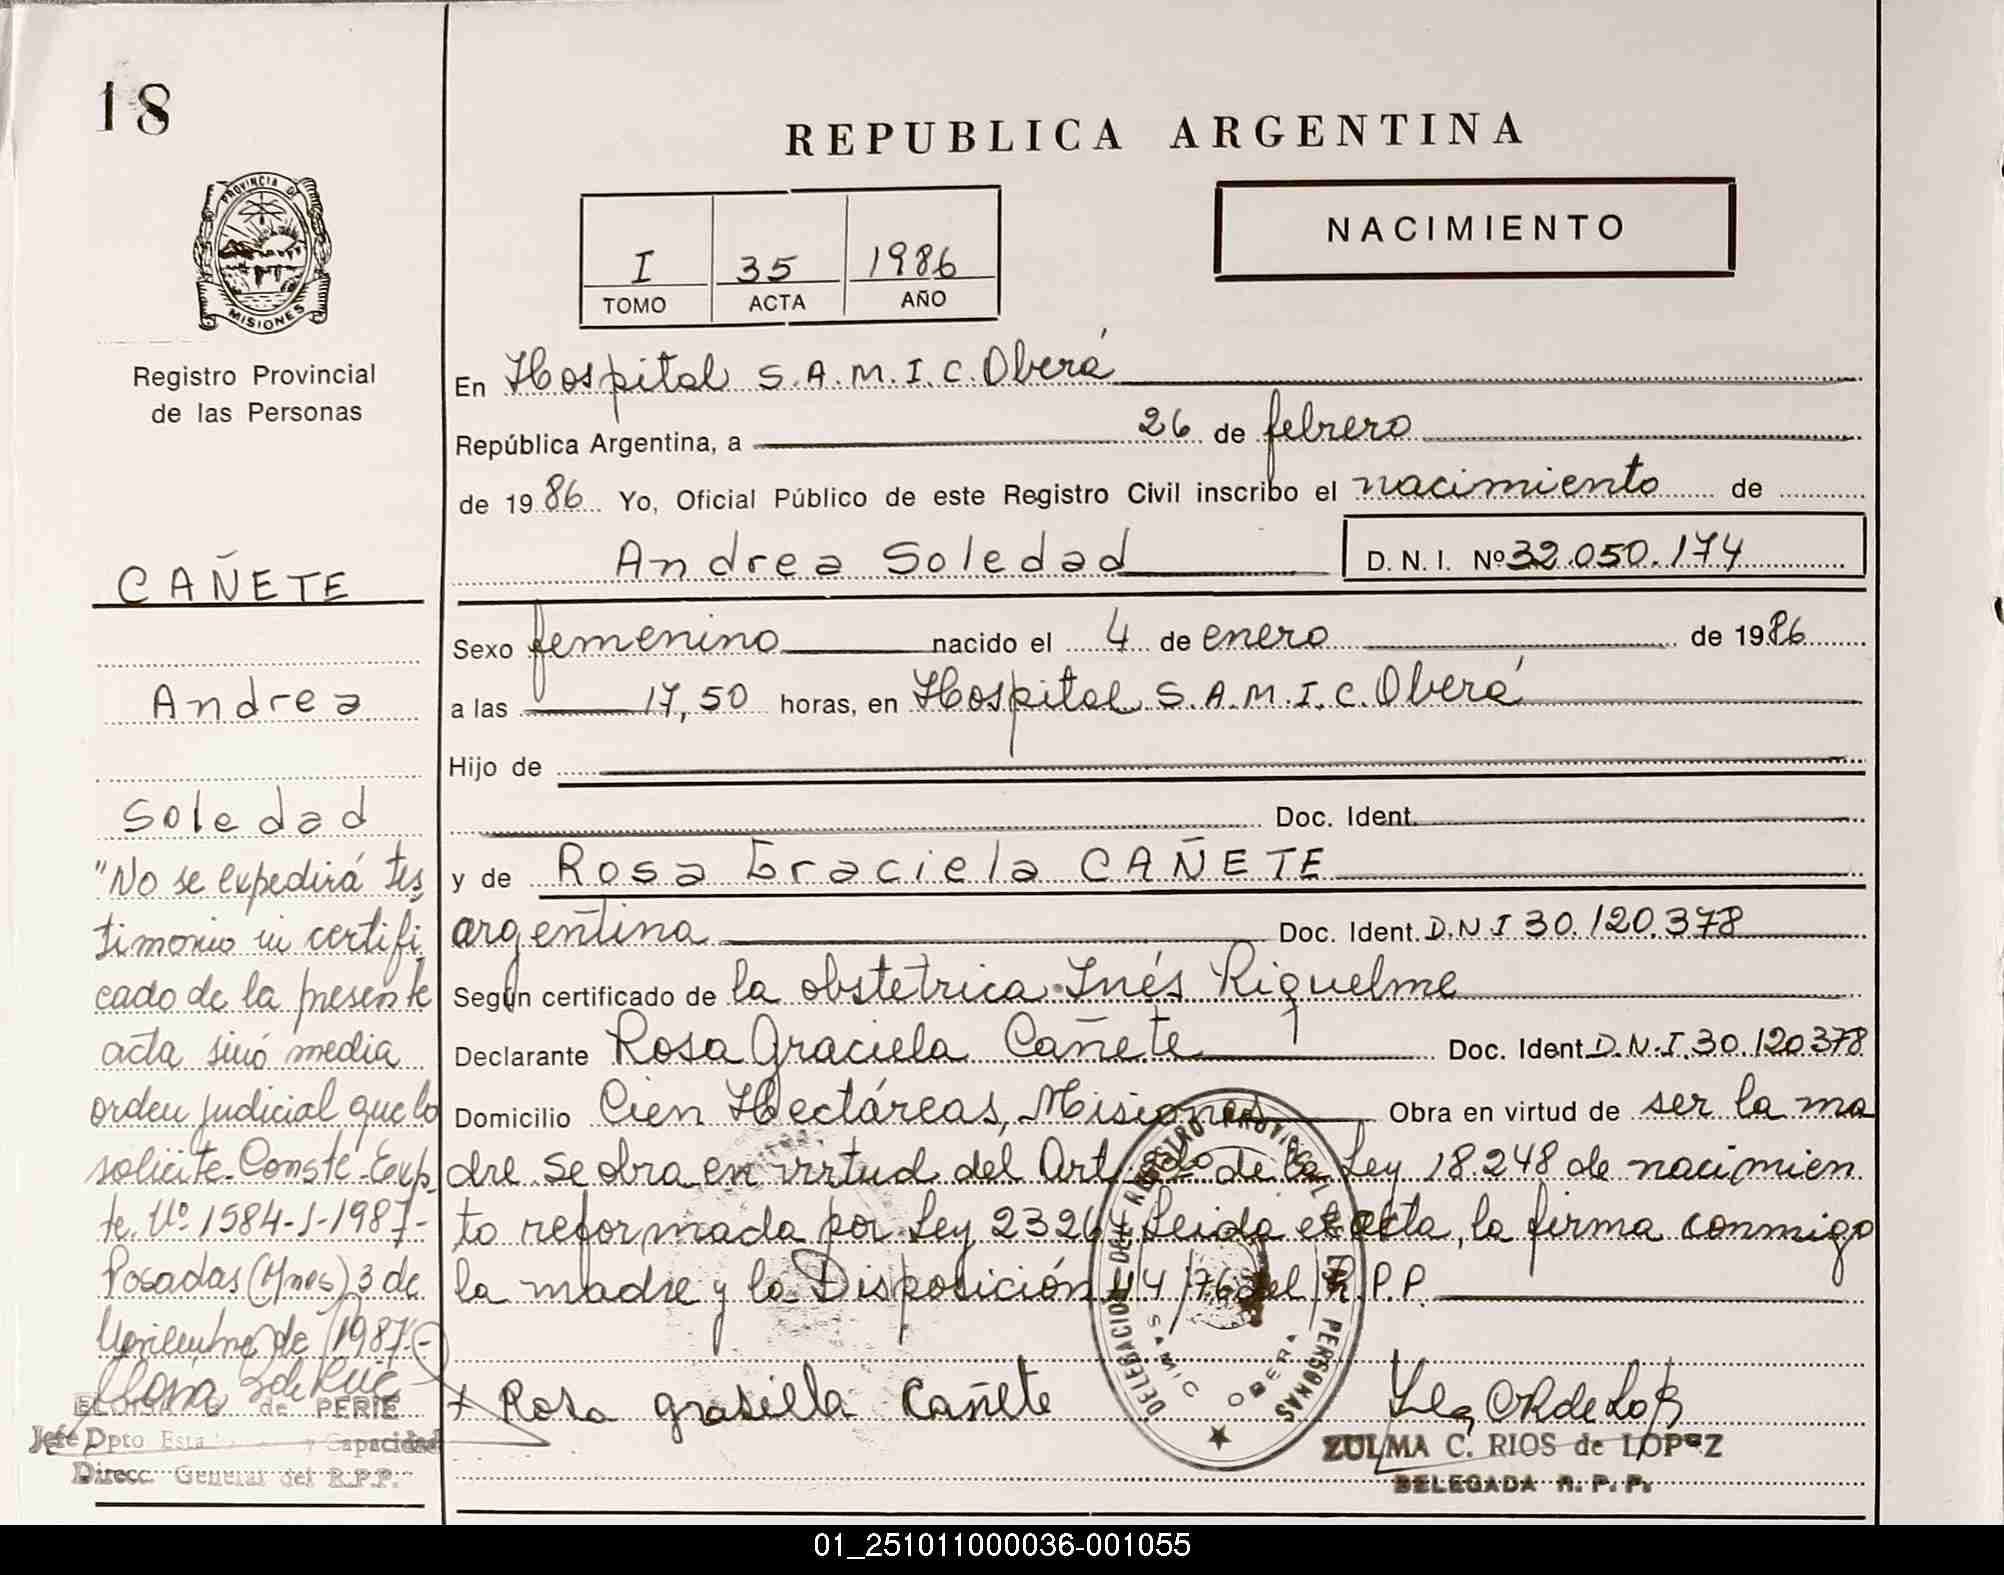 18
REPUBLICA ARGENTINA
NACIMIENTO
I 35 1986
TOMO ACTA AÑO
PROVINCIA DE
MISIONES
Registro Provincial
de las Personas
En Hospital S.A.M.I.C. Oberá
República Argentina, a 26 de febrero
de 1986 Yo, Oficial Público de este Registro Civil inscribo el nacimiento de
Andrea Soledad D.N.I. Nº 32.050.174
Sexo femenino nacido el 4 de enero de 1986
a las 17,50 horas, en Hospital S.A.M.I.C. Oberá
Hijo de
Doc. Ident.
y de Rosa Graciela CAÑETE
argentina Doc. Ident. D.N.I 30.120.378
Según certificado de la obstetrica Inés Riquelme
Declarante Rosa Graciela Cañete Doc. Ident. D.N.I. 30.120.378
Domicilio Cien Hectáreas, Misiones Obra en virtud de ser la ma
dre. Se obra en virtud del Art. de la Ley 18.248 de nacimien
to reformada por Ley 23264 Leida el acta, la firma conmigo
la madre y la Disposición 44/76 del R.P.P.
+ Rosa grasiella Cañete
ZULMA C. RIOS de LOPEZ
DELEGADA R.P.P.
DELEGACION DEL REGISTRO PROVINCIAL PERSONAS
SAMIC OBERA
CAÑETE
Andrea
Soledad
"No se expedirá tes
timonio ni certifi
cado de la presente
acta sinó media
orden judicial que lo
solicite. Conste. Exp
te. Nº 1584-J-1987-
Posadas (Mnes) 3 de
Noviembre de 1987-
de PERIE
Jefe Dpto y Capacidad
Direcc. General del R.P.P.
01_251011000036-001055